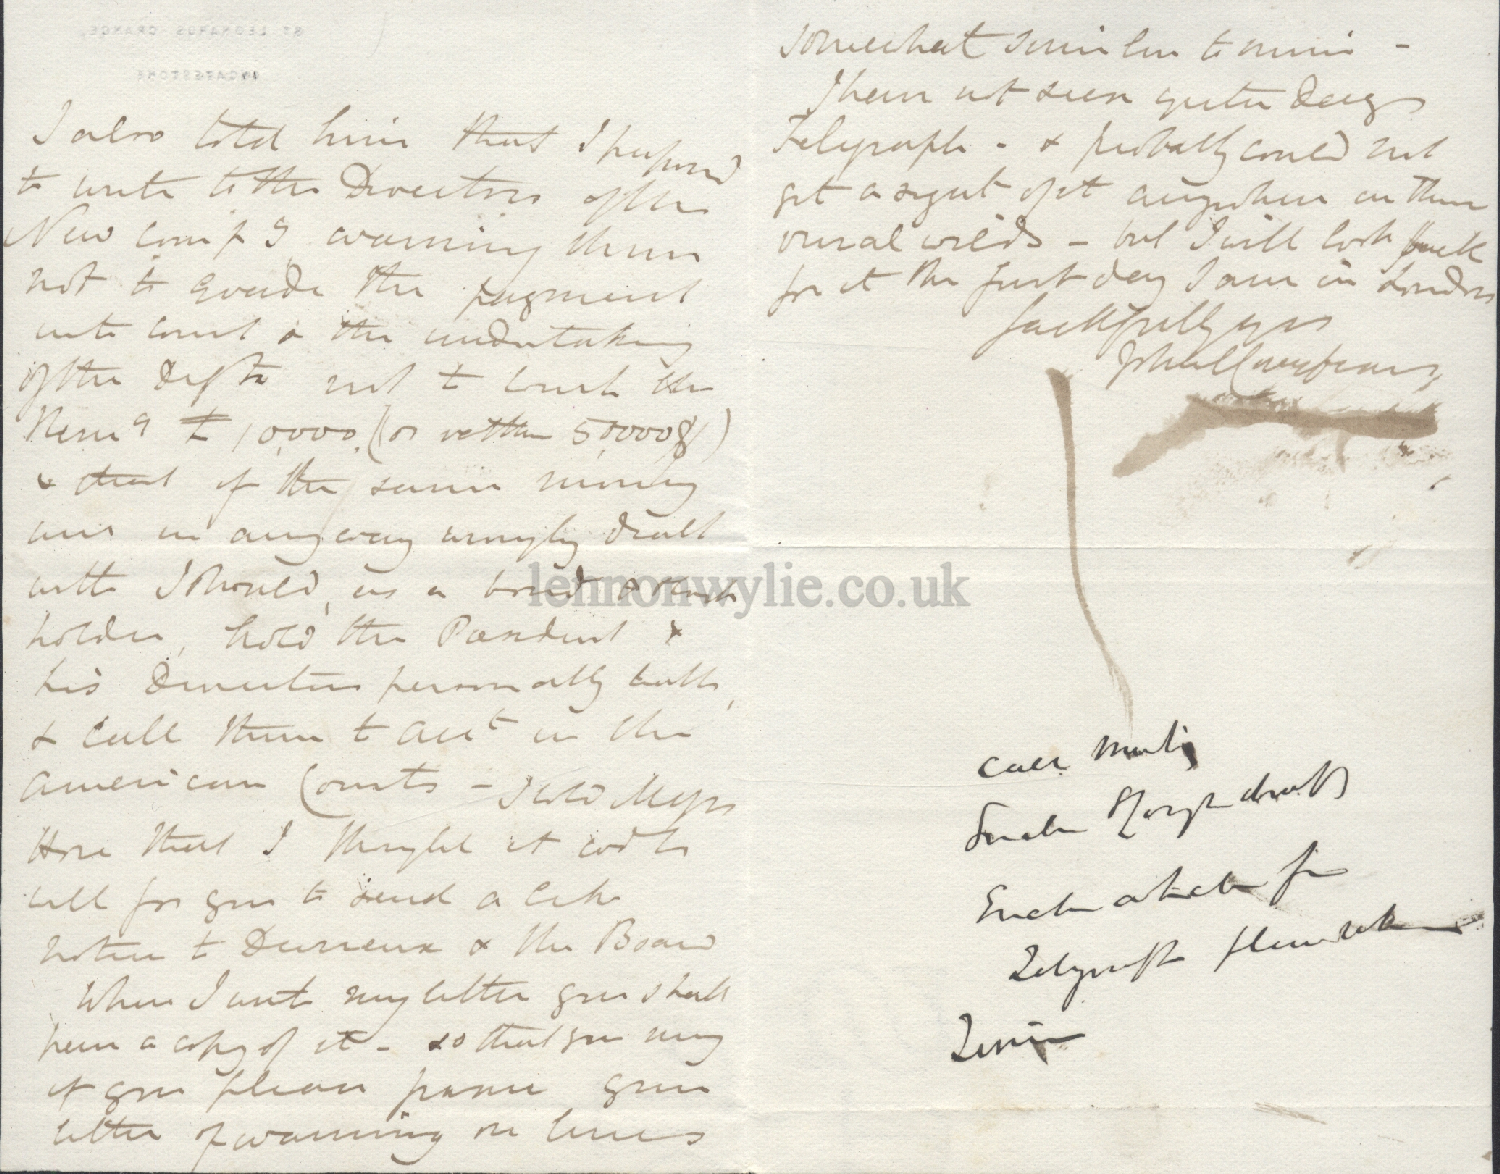 ST LEONARDS GRANGE,
INGATESTONE
I also told him that I proposed
to write to the Directors of the
New Comp y warning them
not to evade the payment
into court & the undertaking
of the Defts not to touch the
Rem g £ 10,000 (or rather 50000 )
& that if the same money
are in any way wrongly dealt
with I should, as a bond & stock
holder, hold the President &
his Directors personally liable,
& call them to acct in the
American Courts - I told Messrs
Hore that I thought it wd be
well for you to send a like
notice to Durieux & the Board
When I write my letter you shall
have a copy of it - so that you may
if you please frame your
letter of warning on lines
somewhat similar to mine -
I have not seen yesterdays
Telegraph - & probably could not
get a sight of it anywhere in these
rural wilds - but I will look back
for it the first day I am in London
faithfully yrs
lennonwylie.co.uk
Case
Enclose drafts
Enclose for
Telegraph